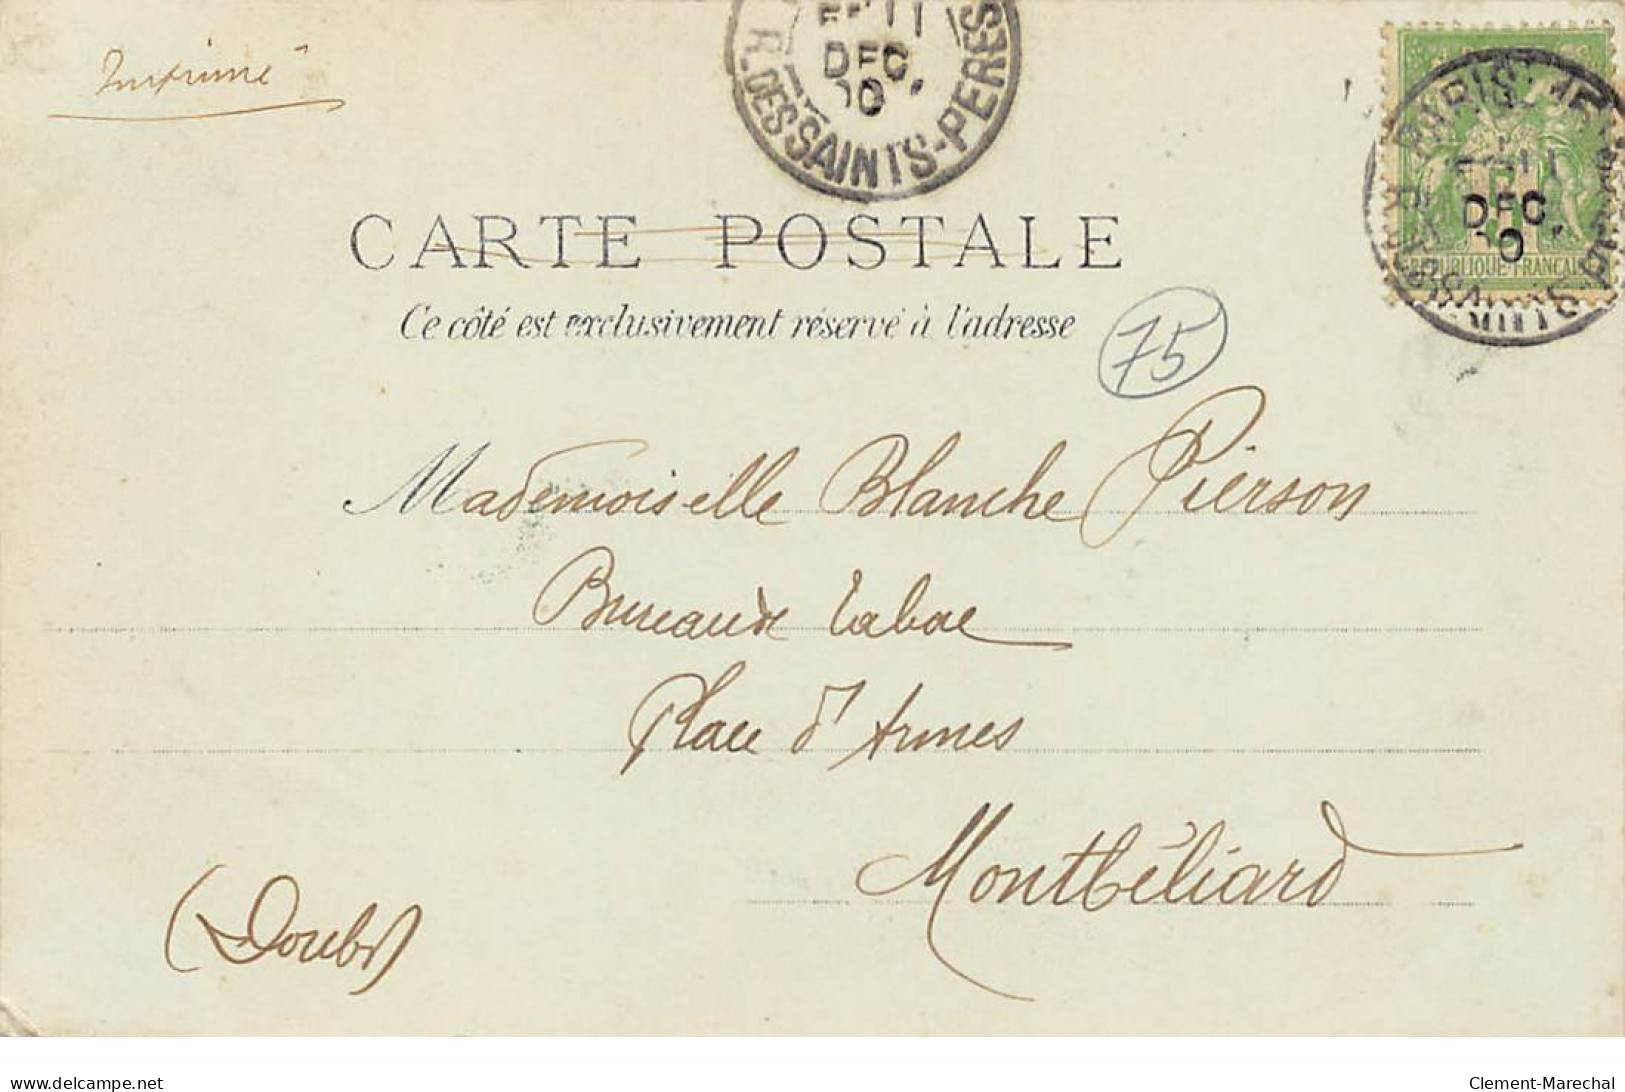 Imprimé
R. DES SAINTS-PÈRES
11
DEC.
PARIS
DEC.
RÉPUBLIQUE FRANÇAISE
CARTE POSTALE
Ce côté est exclusivement réservé à l'adresse
75
Mademoiselle Blanche Pierson
Bureau de tabac
Place d'Armes
Montbéliard
(Doubs)
delcampe.net
Clement-Marechal